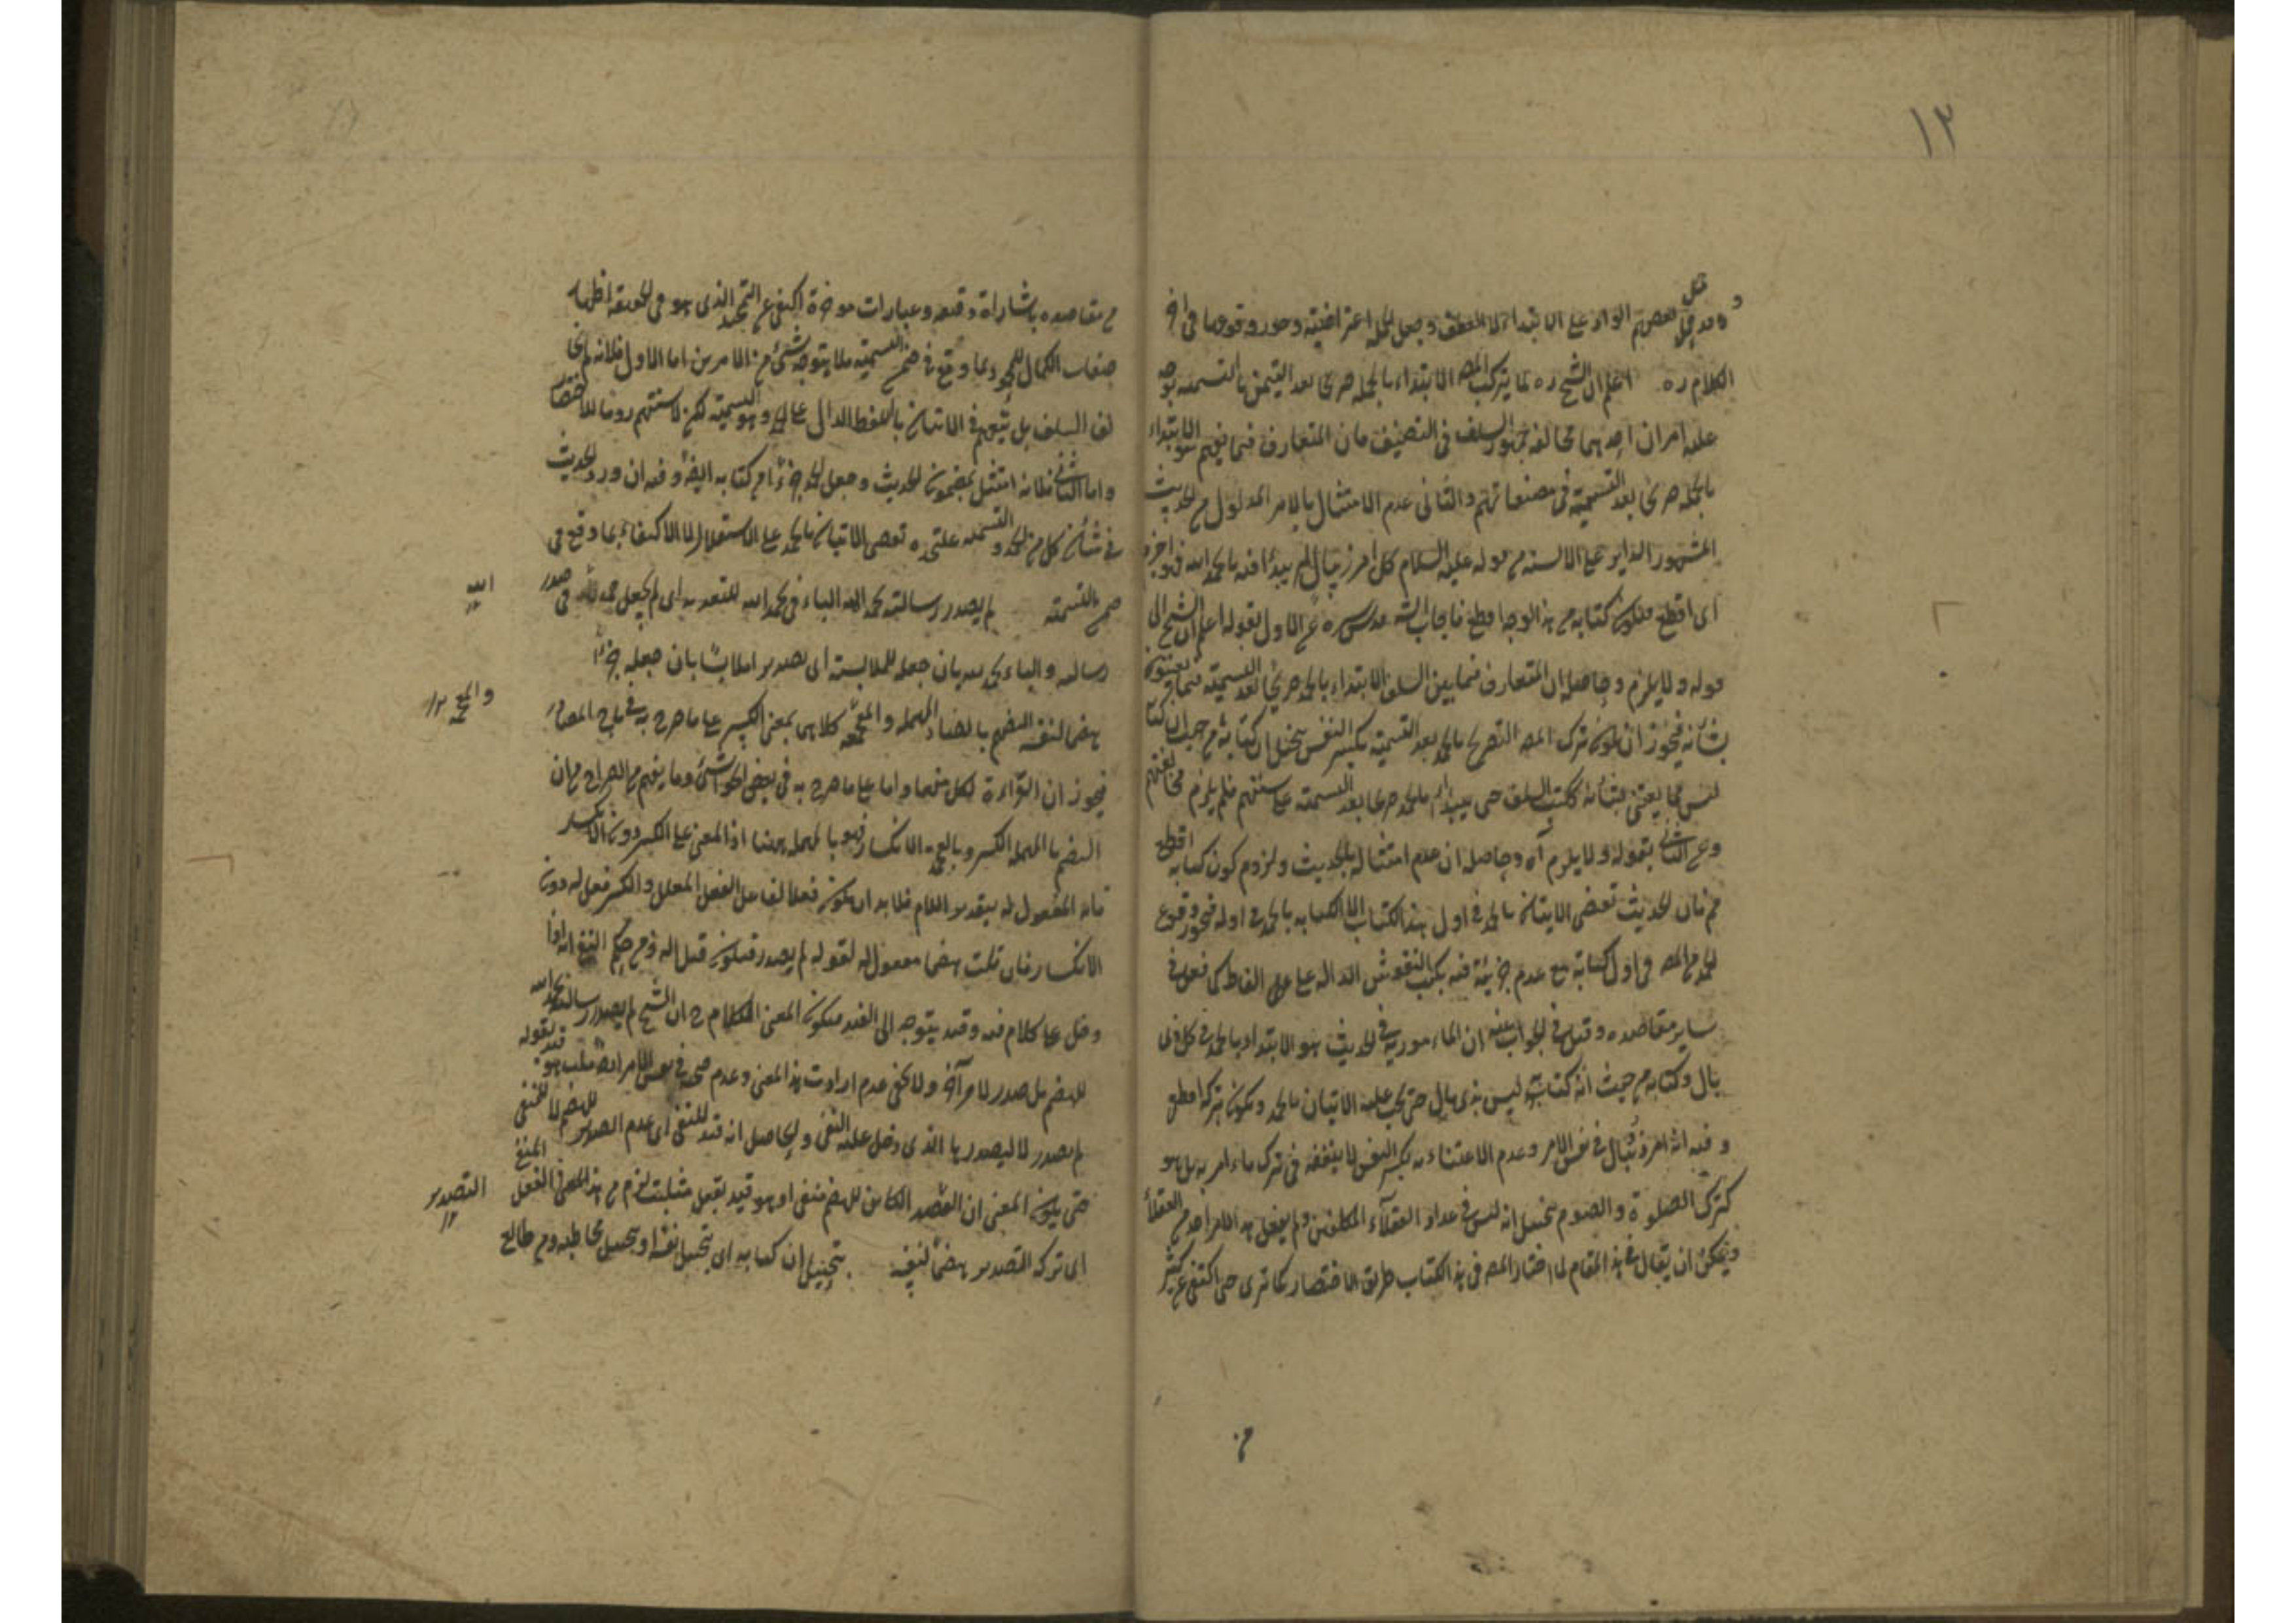 ١٣
قيل
و قد حمل بعضهم الواو على الابتداء لا العطف و جعل الجملة اعتراضية و جوز وقوعها في آخر
الكلام ره اعلم ان الشيخ ره لما ترك المص الابتداء بالحمد صريحا بعد التيمن بالتسمية توجه
عليه امران احدهما مخالفة جمهور السلف في التصنيف فان المتعارف فيما بينهم هو الابتداء
بالحمد صريحا بعد التسمية في مصنفاتهم و الثاني عدم الامتثال بالامر المدلول من الحديث
المشهور الداير على الالسنة من قوله عليه السلام كل امر ذي بال لم يبدأ فيه بالحمد لله فهو اجزم
اى اقطع فيكون كتابه من هذا الوجه اقطع فاجاب الش قدس سره عن الاول بقوله اعلم ان الشيخ الى
قوله و لا يلزم و حاصله ان المتعارف فيما بين السلف الابتداء بالحمد صريحا بعد التسمية فيما يعتنون
بشأنه فيجوز ان يكون ترك المص التصريح بالحمد بعد التسمية بكسر النفس بتخييل ان كتابه من حيث انه كتابه
ليس مما يعتنى بشأنه ككتب السلف حتى يبدأ بالحمد صريحا بعد التسمية على سننهم فلم يلزم مخالفتهم
و عن الثاني بقوله و لا يلزم آه و حاصله ان عدم امتثاله بالحديث و لزوم كون كتابه اقطع
مم فان الحديث تقتضى الاتيان بالحمد في اول هذا الكتاب لا الكتابة بالحمد في اوله فيجوز وقوع
الحمد من المص في اول كتابه مع عدم جزئية فيه بكتب النقوش الدالة على الفاظ كما فعل في
ساير مقاصده و قيل في الجواب عنه ان المامور به في الحديث هو الابتداء بالحمد في كل ذى
بال و كتابه من حيث انه كتابه ليس بذى بال حتى يجب عليه الاتيان بالحمد و يكون بتركه اقطع
و فيه انه امر ذو بال في نفس الامر و عدم الاعتناء به بكسر النفس لا ينفعه في ترك ما امر به بل هو
كترك الصلوة و الصوم بتخييل انه ليس في عداد العقلاء المكلفين و لم يفعل بهذا الامر احد من العقلاء
و يمكن ان يقال في هذا المقام لما اختار المص في هذا الكتاب طريق الاختصار كما ترى حتى اكتفى عن كثير
من
من مقاصده باشارات دقيقة و عبارات موجزة اكتفى عن التحميد الذى هو في الحقيقة اظهار
صفات الكمال للمحمود بما وقع في ضمن التسمية فلا يتوجه شئ من الامرين اما الاول فلانه لم يخا
لف السلف بل يتبعهم في الاتيان باللفظ الدال على الحمد و هو التسمية لكن لا سننهم روما للاختصار
و اما الثاني فلانه امتثل بمضمون الحديث و جعل الحمد جزءا من كتابه ايضا و فيه ان ورود الحديث
في شأن كل من الحمد و التسمية علتحده تقتضى الاتيان بالحمد على الاستقلال لا الاكتفاء بما وقع في
ضمن التسمية لم يصدر رسالته بحمد الله الباء في بحمد الله للتعدية اى لم يجعل حمد الله في صدر
الله
رسالته و الباء بان جعله للملابسة اى تصديرا ملابسا بان جعله جزءا
هضما لنفسه الهضم بالضاد المهملة و المعجمة كلاهما بمعنى الكسر على ما صرح به في تاج المصادر
و المعجمة ١٢
فيجوز ان القراءة لكل منهما و اما على ما صرح به في بعض الحواشى و ما يفهم من الصراح من ان
الهضم بالمهملة الكسر و بالمعجمة الانكسار فهو بالمهملة ههنا اذ المعنى على الكسر دون الانكسار
فانه المفعول له بتقدير اللام فلا بد ان يكون فعلا لفاعل الفعل المعلل و الكسر فعل له دون
الانكسار فان قلت هضما مفعول له لقوله لم يصدر فيكون قيدا له و من حكم النفى انه اذا
دخل على كلام فيه قيد يتوجه الى القيد فيكون المعنى الكلام ح ان الشيخ لم يصدر رسالته بحمد الله
للهضم بل صدر لامر آخر و لا يخفى عدم ارادة هذا المعنى و عدم صحته في نفس الامر ايضا قلت هو قيد لقوله
لم يصدر لا ليصدر بها الذى دخل عليه النفى و الحاصل انه قيد للنفى اى عدم التصدير للهضم لا للمنفى
حتى يكون المعنى ان التصدير الكائن للهضم منفى او هو قيد بفعل مثبت لزم من هذا الفعل المنفى
التصدير
اى ترك التصدير هضما لنفسه بتخييل ان كتابه اى بتخييل نفسه او بتخييل مخاطبه و من طالع